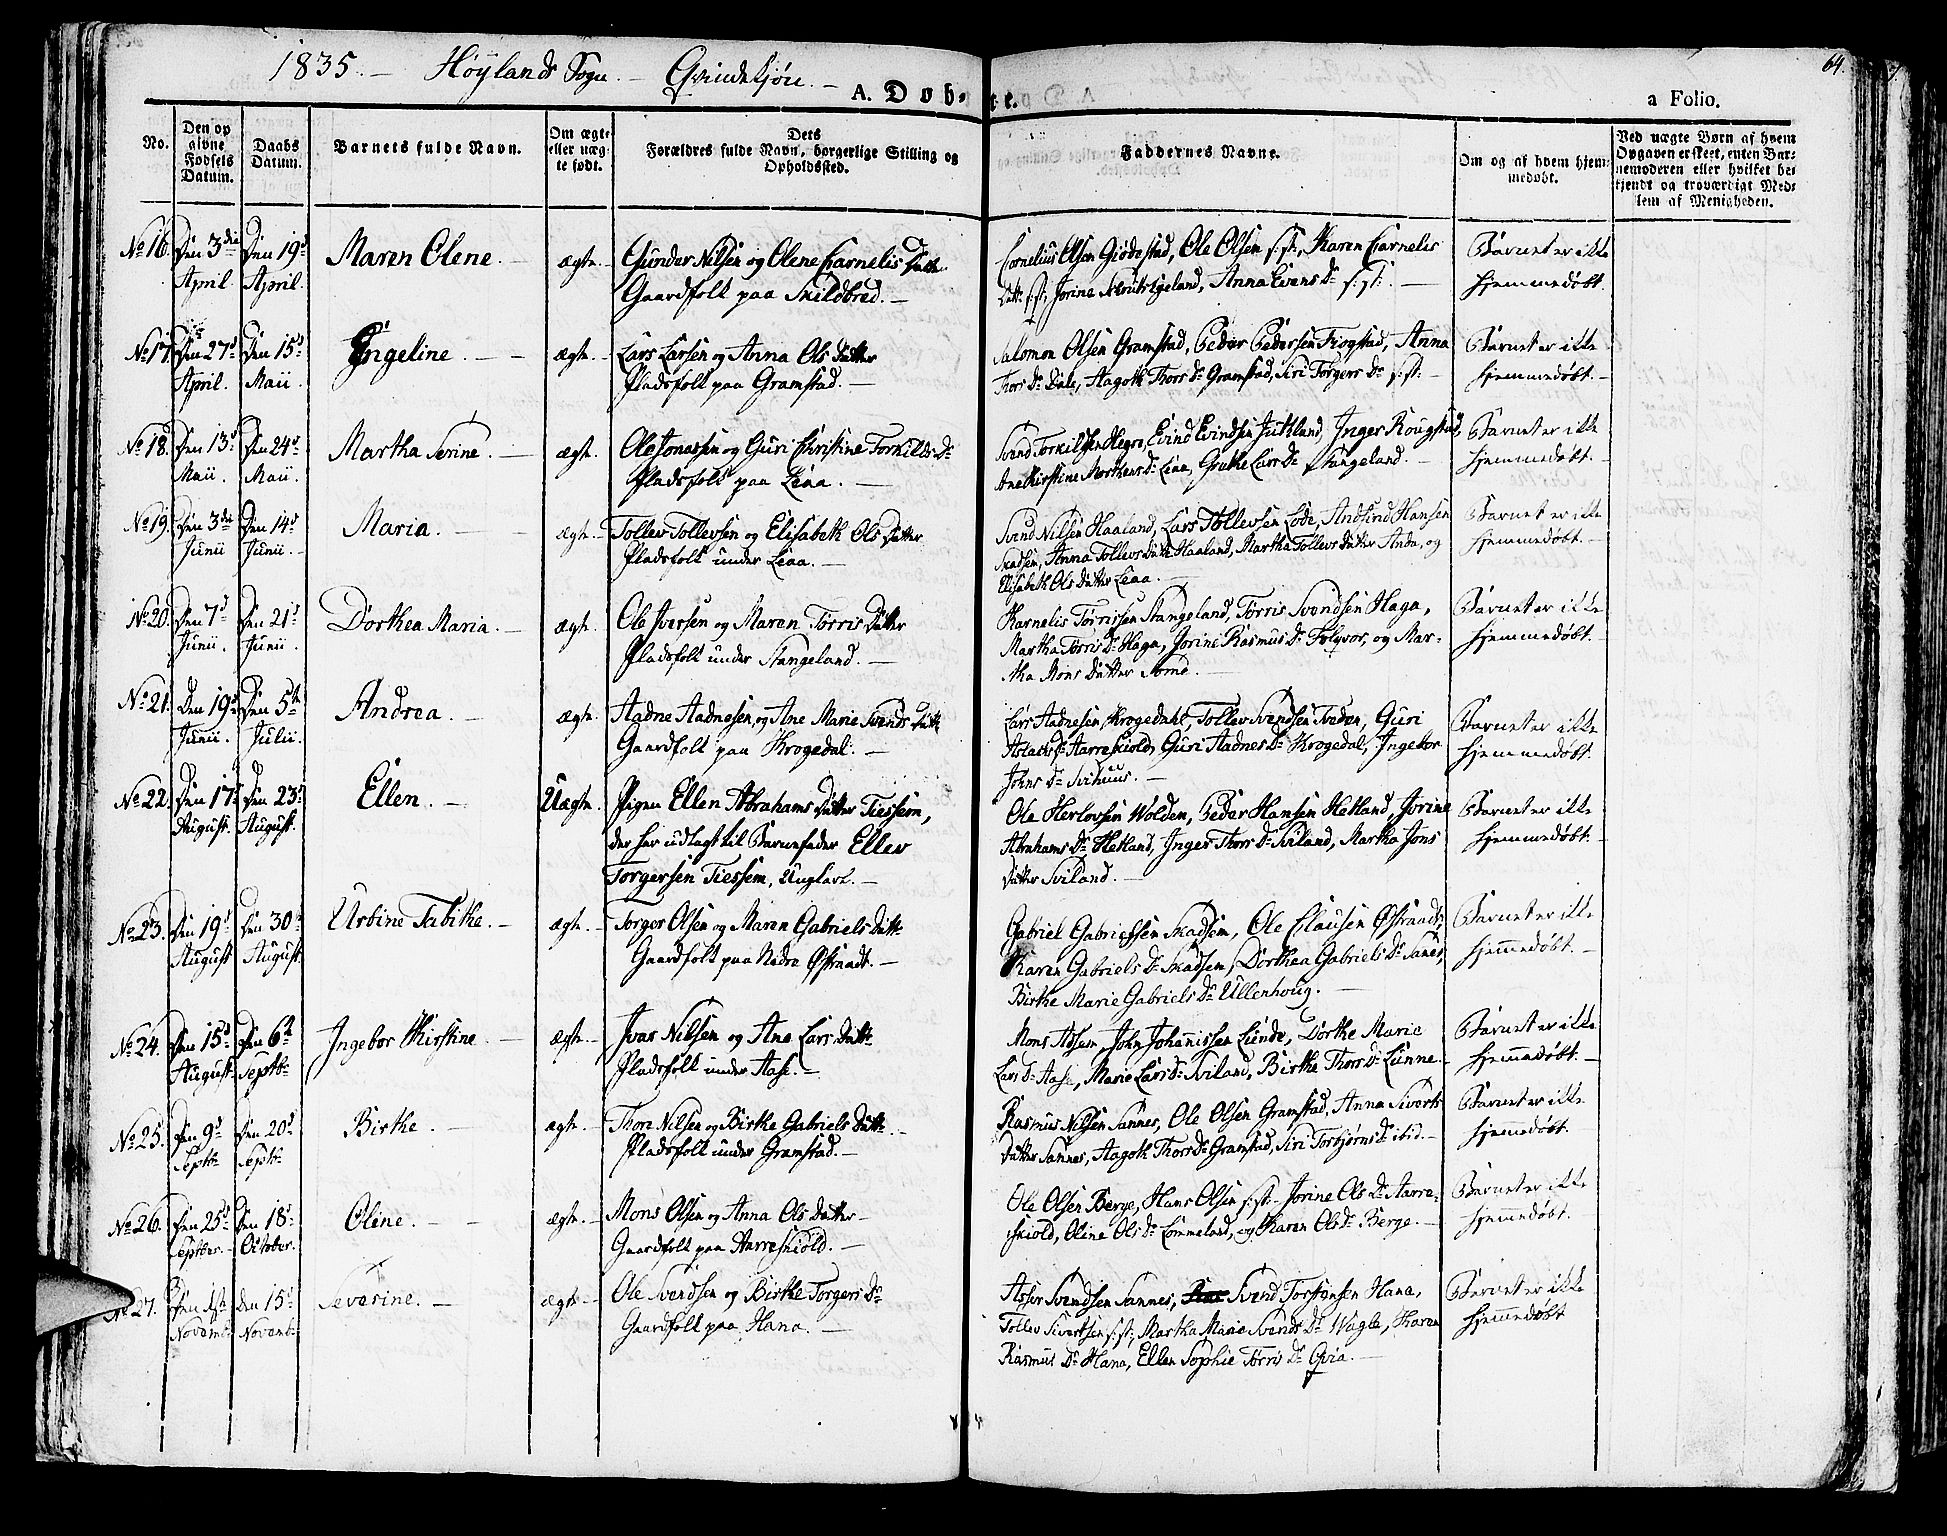 1835. — Höylands Sogn. — Qvindekjøn. —
64.
A. Døb- te.
a Folio.
No.
Den op
givne
Fødsels
Datum.
Daabs
Datum.
Barnets fulde Navn.
Om ægte
eller uæg-
te født.
Dets
Forældres fulde Navn, borgerlige Stilling og
Opholdssted.
Faddernes Navne.
Om og af hvem hjem-
medøbt.
Ved uægte Børn af hvem
Opgaven er skeet, enten Bar-
nemoderen eller hvilket be-
kjendt og troværdigt Med-
lem af Menigheden.
No 16. Den 3die April. Den 19d April. Maren Olene. — ægte.
Gunder Nilsen og Olene Cornelis Datt.
Gaardfolk paa Skildbred. —
Cornelius Olsen Giödestad, Ole Olsen s:st:, Karen Cornelis
Datt: s:st:, Jorine Skrudsgeland, Anna Evens Dr s:st: —
Barnet er ikke
hjemmedøbt.
No 17. Den 27d April. Den 15d Maii. Ingeline. — ægte.
Lars Larsen og Anna Ols Datter
Pladsfolk paa Gramstad. —
Salomon Olsen Gramstad, Peder Pedersen Fiogstad, Anna
Thors Dr Dale, Aagoth Thors Dr Gramstad, Siri Torgers Dr s:st: —
Barnet er ikke
hjemmedøbt. —
No 18. Den 13d Maii. Den 24d Maii. Martha Serine. — ægte.
Ole Jonassen og Guri Christine Torkilds Dr
Pladsfolk paa Leaa. —
Svend Torkilsen Hegre, Eivind Evindsen Jutsland, Inger Rougstad,
Ane Kirstine Morthens Dr Leaa, Gruthe Lars Dr Stangeland. —
Barnet er ikke
hjemmedøbt. —
No 19. Den 3die Junii Den 14d Junii. Maria. — ægte. —
Tollev Tollevsen og Elisabeth Ols Datter
Pladsfolk under Leaa. —
Svend Nilsen Haaland, Lars Tollevsen Lode, Andsind Hansen
Skadsem, Anna Tollevs Datt Haaland, Martha Tollevs Datter Anda, og
Elisabeth Ols Datter Leaa. —
Barnet er ikke
hjemmedøbt. —
No 20. Den 7d Junii. Den 21d Junii. Dorthea Maria. — ægte.
Ole Iversen og Maren Tørris Datter
Pladsfolk under Stangeland. —
Karnelis Tørrissen Stangeland, Tørris Svendsen Haga,
Martha Tørris Dr Haga, Jorine Rasmus Dr Folqvor, og Mar-
tha Mons Datter Somd. —
Barnet er ikke
hjemmedøbt. —
No 21. Den 19d Junii. Den 5te Julii. Andrea. — ægte.
Aadne Aadnesen, og Ane Marie Svends Datt
Gaardfolk paa Krogedal. —
Lars Aadnesen Krogedahl, Tollev Svendsen Sveden, Guri
Aslachs Dr Aarreskiold, Guri Aadnes Dr Krogedal, Ingebor
Johns Dr Svihuus. —
Barnet er ikke
hjemmedøbt.
No 22. Den 17d August. Den 23d August. Ellen. — Uægte.
Pigen Ellen Abrahams Datter Tiessem,
der har udlagt til Barnefader Ellev
Torgersen Tiessem, Ungkarl. —
Ole Herlovsen Wolden, Peder Hansen Hetland, Jorine
Abrahams Dr Hetland, Inger Thors Dr Sviland, Martha Jons
Datter Sviland. —
Barnet er ikke
hjemmedøbt. —
No 23. Den 19d August Den 30te August. Urbine Tabitha. — ægte. —
Torger Olsen og Maren Gabriels Datt:
Gaardfolk paa Nedre Østraadt. —
Gabriel Gabrielsen Skadsem, Ole Clausen Østraadt,
Karen Gabriels Dr Skadsem, Dorthea Gabriels Dr Sannes,
Birthe Marie Gabriels Dr Ullenhoug. —
Barnet er ikke
hjemmedøbt. —
No 24. Den 15d August. Den 6te Septbr. Ingebor Kirstine. — ægte. —
Ivar Nilsen og Ane Lars Datt:
Pladsfolk under Aase. —
Mons Adsem, John Johanissen Lunde, Dorthe Marie
Lars Dr Aase, Marie Lars Dr Sviland, Birthe Thors Dr Lunne.
Barnet er ikke
hjemmedøbt. —
No 25. Den 9d Septbr Den 20d Septbr Birthe. — ægte. —
Thore Nilsen og Birthe Gabriels Datt: —
Pladsfolk under Gramstad. —
Rasmus Nilsen Sannes, Ole Olsen Gramstad, Anna Siverts
Datter Sannes, Aagoth Thors Dr Gramstad, Siri Torbjørns Dr ibid. —
Barnet er ikke
hjemmedøbt.
No 26. Den 25d Septber. Den 18d October. Oline. — ægte. —
Mons Olsen og Anna Ols Datter —
Gaardfolk paa Aarreskiold. —
Ole Olsen Berge, Hans Olsen s:st: Jorine Ols Dr Aarre-
skiold, Oline Ols Dr Lommeland, og Karen Ols Dr Berge. —
Barnet er ikke
hjemmedøbt.
No 27. Den 1ste Novembr Den 15d Novembr Severine. — ægte —
Ole Svendsen og Birthe Torgers Dr
Gaardfolk paa Hana. —
Assor Svendsen Sannes, Svend Torstensen Hana,
Tollev Sivertsen s:st:, Martha Marie Svends Dr Wagle, Karen
Rasmus Dr Hana, Ellen Sophie Tørris Dr Qvia. —
Barnet er ikke
hjemmedøbt